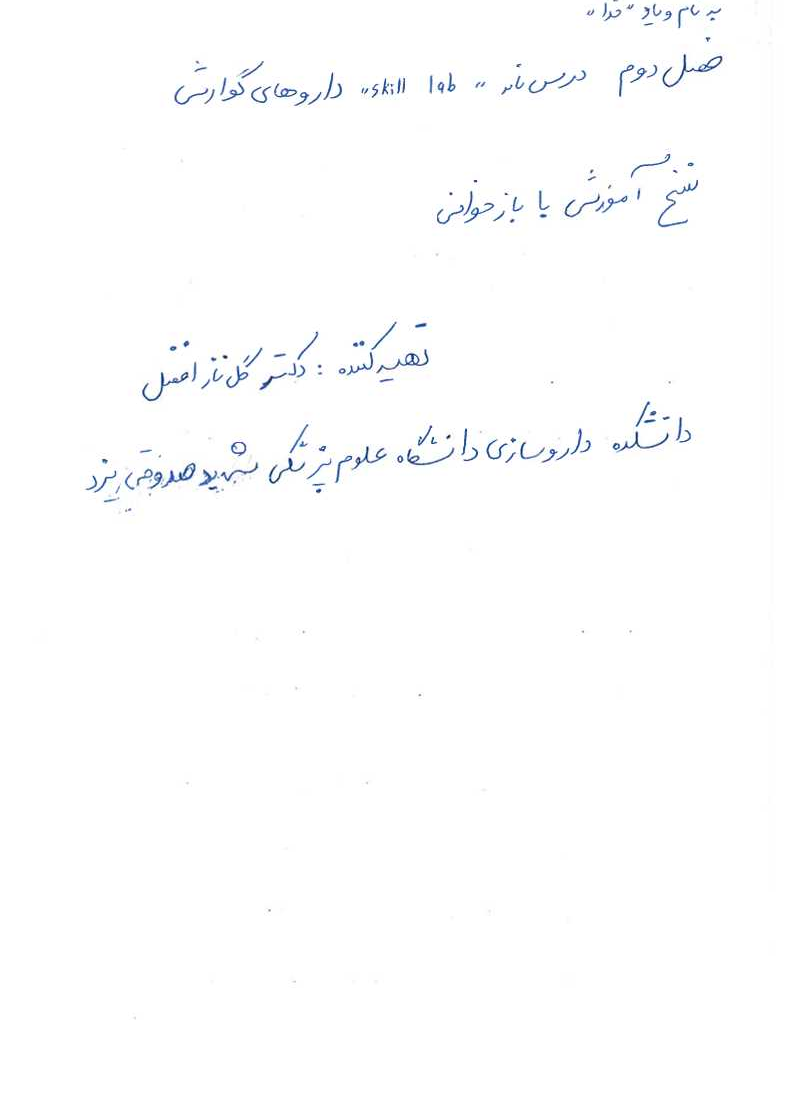 به نام و یاد "خدا"
فصل دوم درس نامه "skill lab" داروهای گوارش
نسخ آموزشی با بازخوانی
تهیه کننده : دکتر گل ناز افضل
دانشکده داروسازی دانشگاه علوم پزشکی شهید صدوقی یزد